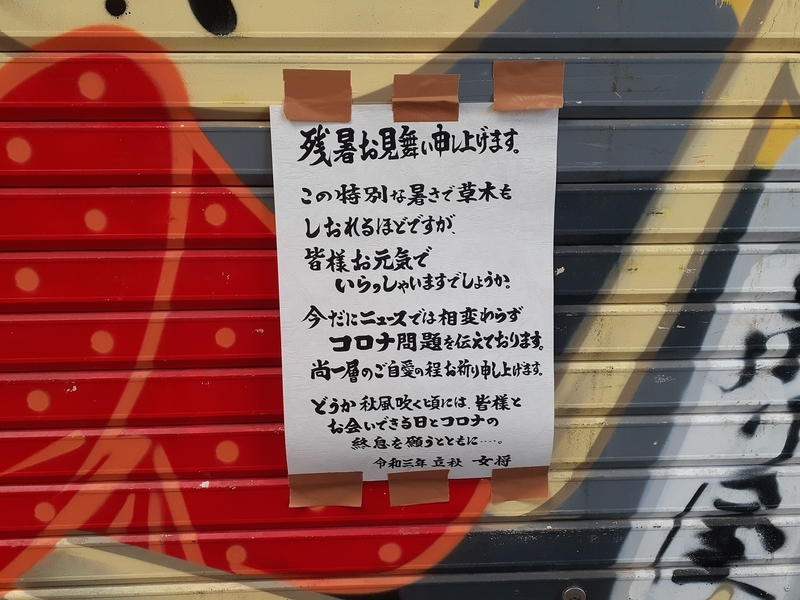 残暑お見舞い申し上げます。
この特別な暑さで草木も
しおれるほどですが、
皆様お元気で
いらっしゃいますでしょうか?
今だにニュースでは相変わらず
コロナ問題を伝えております。
尚一層のご自愛の程お祈り申し上げます。
どうか秋風吹く頃には、皆様と
お会いできる日とコロナの
終息を願うとともに……。
令和三年 立秋 女将
屋